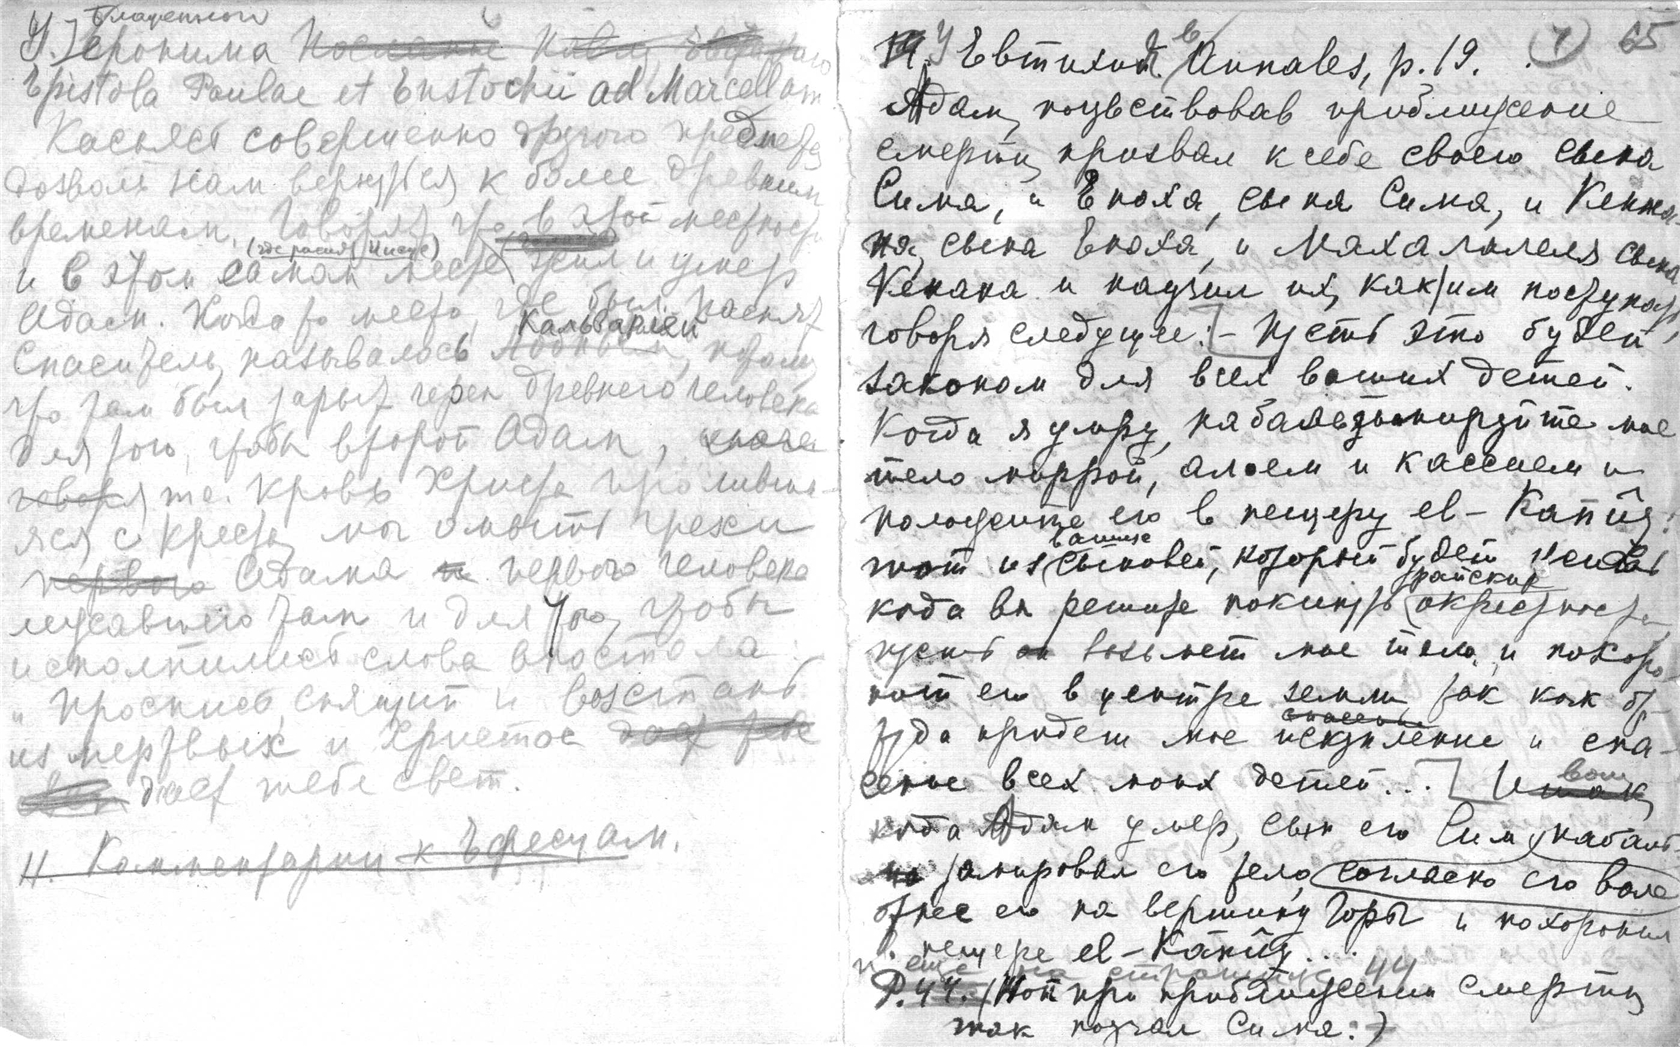 У блаженного
Иеронима Послание Павлы, Евстохия
Epistola Paulae et Eustochii ad Marcellam
Касаясь совершенно другого предмета
дозволь нам вернуться к более древним
временам. Говорят, что в этой местности
(где распят Иисус)
и в этом самом месте жил и умер
Адам. Когда то место, где был распят
Кальварией
Спаситель, называлось Лобным, потому
что там был зарыт череп древнего человека
для того, чтобы второй Адам, иначе
говоря те. кровь Христа пролившa-
яся с креста могла омыть грехи
первого Адама и первого человека
лежавшего там и для того, чтобы
исполнились слова апостола:
"Проснись, спящий и восстань
из мертвых и Христос даст тебе
даст тебе свет.
H. Комментарии к Ефесеям.
(7) 65
У Евтихия. в Annales, p. 19.
Адам, почувствовав приближение
смерти, призвал к себе своего сына
Сима, и Еноха, сына Сима, и Кена-
на, сына Еноха, и Махалалеля сына
Кенана и научил их, как им поступать,
говоря следущее: - Пусть это будет
законом для всех ваших детей.
Когда я умру, набальзамируйте мое
тело миррой, алоем и кассием и
положите его в пещеру ел-Капиз.
ваших
тот из сыновей, который будет жив
райские
когда вы решите покинуть окрестности
пусть он возьмет мое тело, и похоро
нит его в центре земли так как от-
спасение
туда придет мое искупление и спа-
сение всех моих детей...] И вот
когда Адам умер, сын его Сим, набаль-
замировал его тело, согласно его воле
отнес его на вершину горы и похоронил
в пещере ел-Капиз...
и еще на странице 44
P. 44. (Ной при приближении смерти
так поучал Сима:)